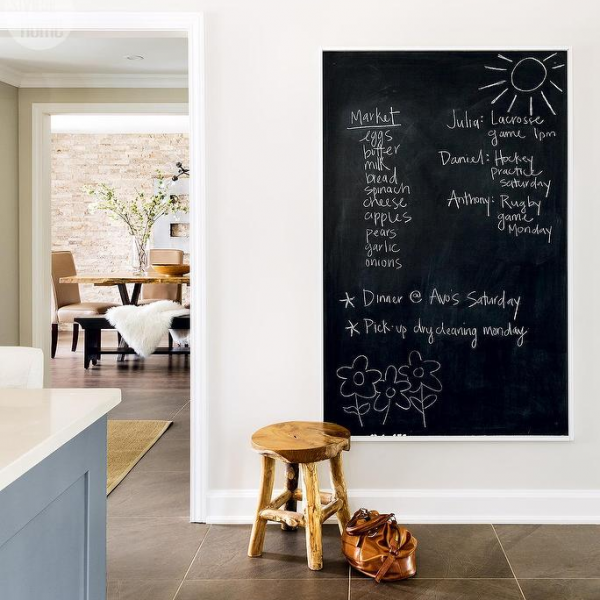 home
Market
eggs
butter
milk
bread
spinach
cheese
apples
pears
garlic
onions
Julia: Lacrosse
game 1pm
Daniel: Hockey
practice
Saturday
Anthony: Rugby
game
Monday
Dinner @ Avo's Saturday
Pick-up dry cleaning monday